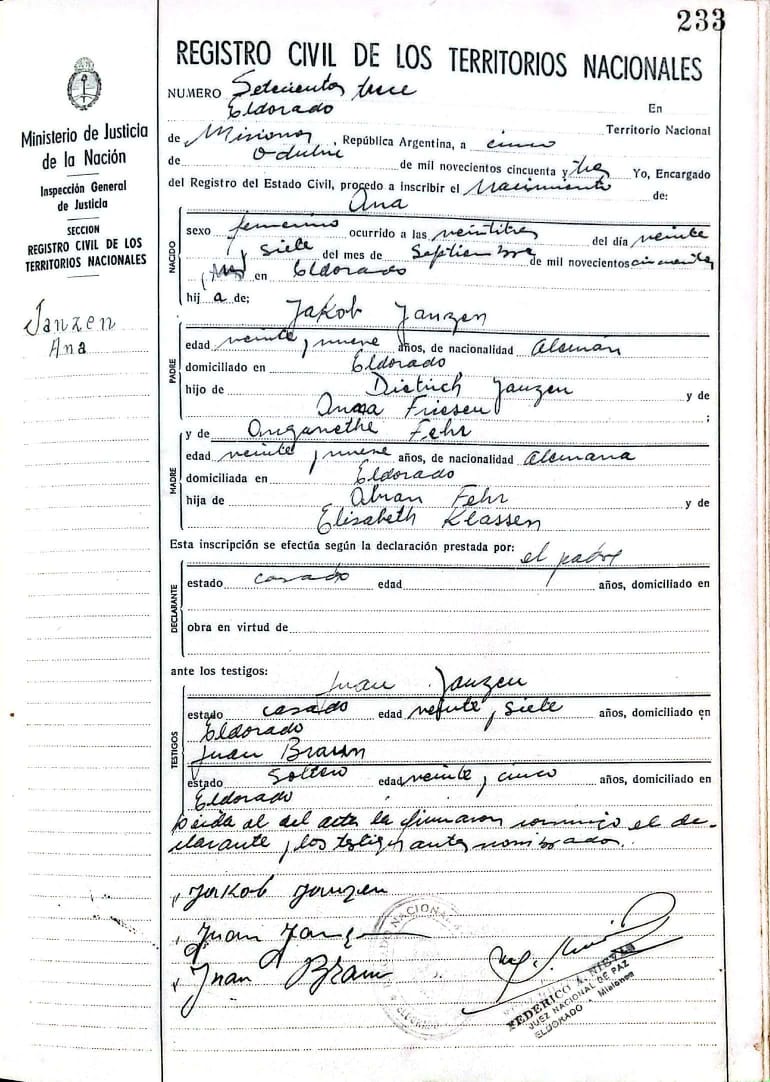 233
REGISTRO CIVIL DE LOS TERRITORIOS NACIONALES
NUMERO Setecientos trece
En
Eldorado
Territorio Nacional
de Misiones, República Argentina, a cinco
de Octubre de mil novecientos cincuenta y tres Yo, Encargado
del Registro del Estado Civil, procedo a inscribir el Nacimiento de:
Ana
NACIDO
sexo femenino ocurrido a las veintitres del día veinte
y siete del mes de Septiembre de mil novecientos cincuenta
y tres en Eldorado
hij a de;
Jakob Janzen
PADRE
edad veinte y nueve años, de nacionalidad Alemán
domiciliado en Eldorado
hijo de Dietrich Janzen y de
Anna Friesen ;
y de Anganethe Fehr
MADRE
edad veinte y nueve años, de nacionalidad Alemana
domiciliada en Eldorado
hija de Abran Fehr y de
Elisabeth Klassen
Esta inscripción se efectúa según la declaración prestada por: el padre
DECLARANTE
estado casado edad años, domiciliado en
obra en virtud de
ante los testigos:
Juan Janzen
TESTIGOS
estado casado edad veinte y siete años, domiciliado en
Eldorado
Juan Braun
estado Soltero edad veinte y cinco años, domiciliado en
Eldorado
Leida el acta la firmaron conmigo el de-
clarante y los testigos antes nombrados.
Jakob Janzen
Juan Janzen
Juan Braun
FEDERICO A.
JUEZ NACIONAL DE PAZ
ELDORADO - Misiones
NACIONAL
ELDORADO
Ministerio de Justicia
de la Nación
Inspección General
de Justicia
SECCION
REGISTRO CIVIL DE LOS
TERRITORIOS NACIONALES
Janzen
Ana